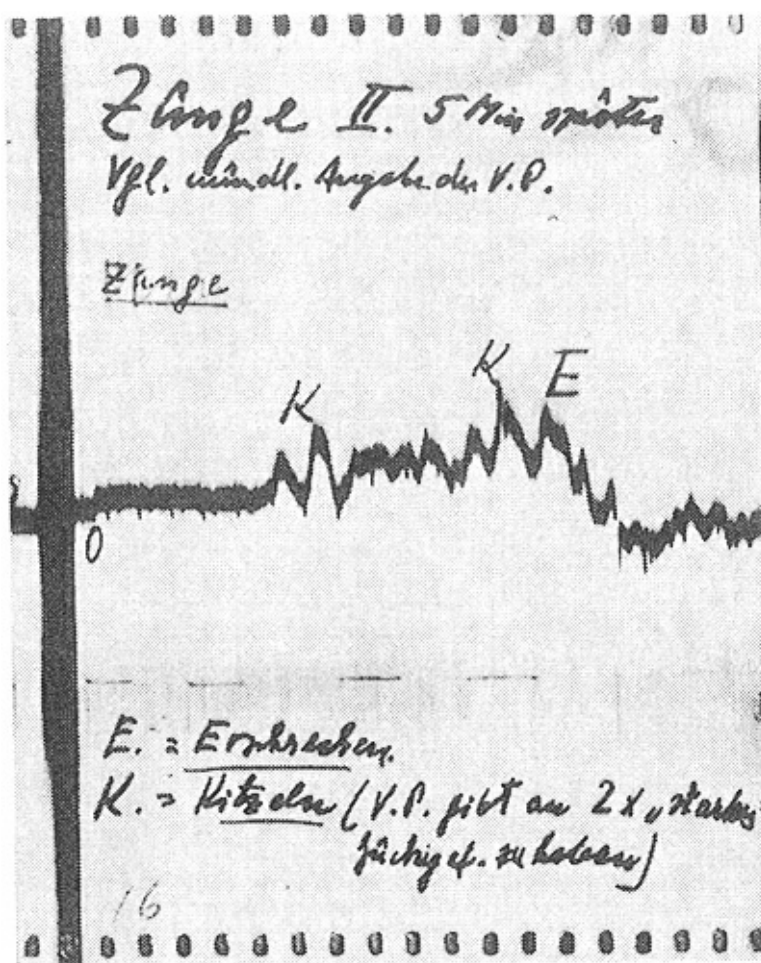 Zunge II. 5 Min später
Vgl. mündl. Angabe der V.P.
Zunge
K
K
E
0
E. = Erschrecken.
K. = Kitzeln (V.P. gibt an 2 x „starkes
zu haben)
16